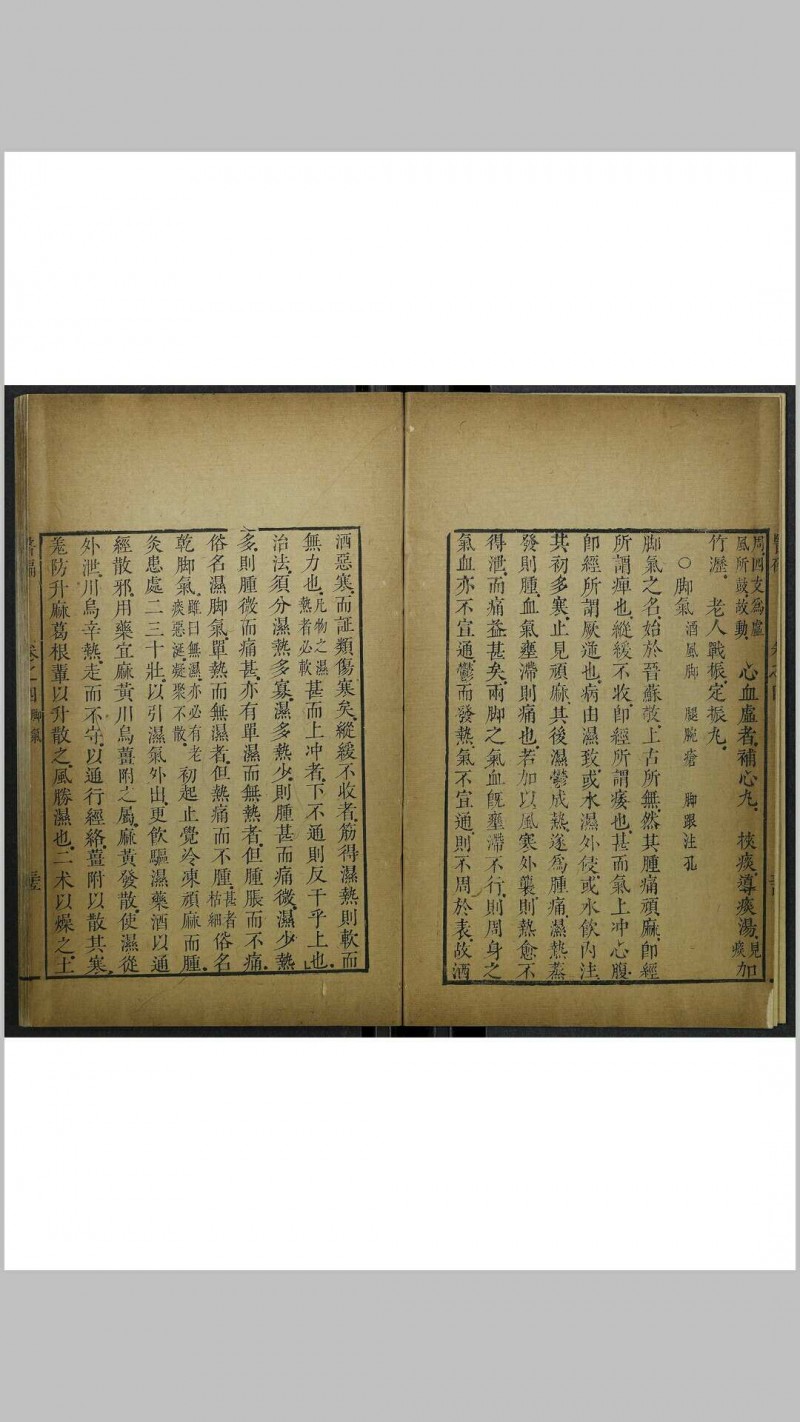 周四支爲虛風所鼓故動。心血虛者補心丸。挾痰導痰湯見痰加
竹瀝。老人戰振定振丸。
○脚氣 酒風脚 腿腕瘡 脚跟注孔
脚氣之名始於晉蘇敬上古所無然其腫痛頑麻卽經
所謂痺也縱緩不收卽經所謂痿也甚而氣上冲心腹
卽經所謂厥逆也病由濕致或水濕外侵或水飲內注
其初多寒止見頑麻其後濕鬱成熱遂爲腫痛濕熱蒸
發則腫血氣壅滯則痛也若加以風寒外襲則熱愈不
得泄而痛益甚矣兩脚之氣血旣壅滯不行則周身之
氣血亦不宣通鬱而發熱氣不宣通則不周於表故洒
洒惡寒而証類傷寒矣縱緩不收者筋得濕熱則軟而
無力也凡物之濕熱者必軟甚而上冲者下不通則反干乎上也
治法須分濕熱多寡濕多熱少則腫甚而痛微濕少熱
多則腫微而痛甚亦有單濕而無熱者但腫脹而不痛
俗名濕脚氣單熱而無濕者但熱痛而不腫甚者枯細俗名
乾脚氣雖曰無濕亦必有老痰惡涎凝聚不散初起止覺冷凍頑麻而腫
灸患處二三十壯以引濕氣外出更飲驅濕藥酒以通
經散邪用藥宜麻黃川烏薑附之屬麻黃發散使濕從
外泄川烏辛熱走而不守以通行經絡薑附以散其寒
羗防升麻葛根輩以升散之風勝濕也二术以燥之土
醫碥 卷之四 脚氣